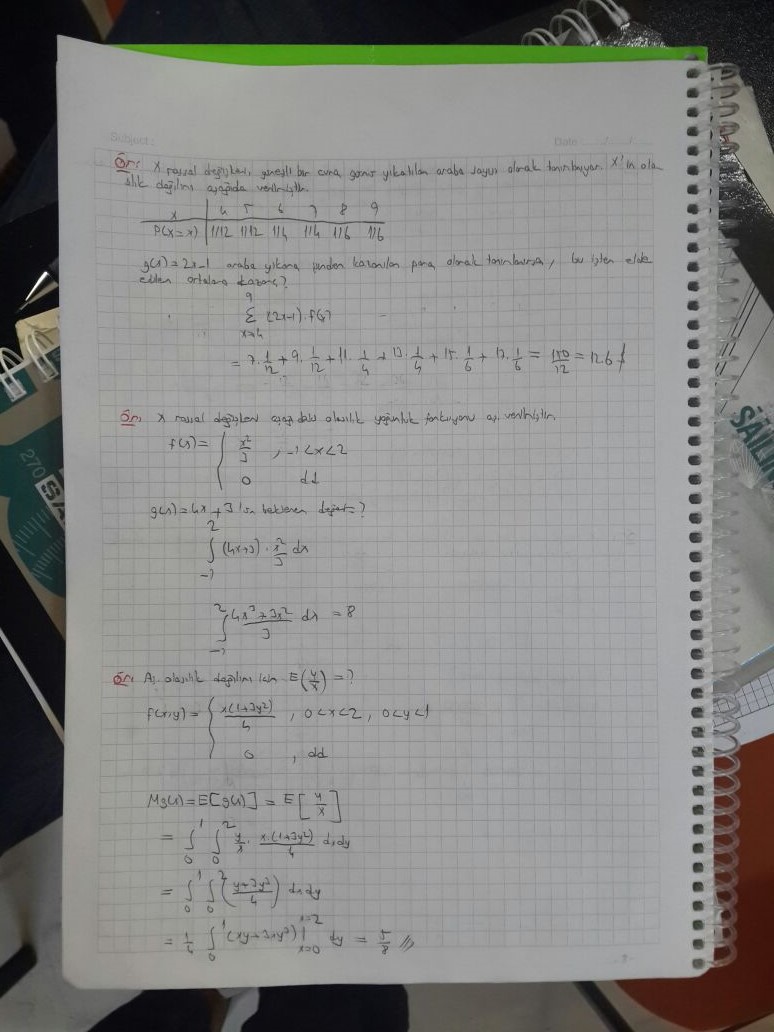 Subject :
Date ..../..../....
Ör: X rassal değişkeni, güneşli bir cuma günü yıkatılan araba sayısı olarak tanımlanıyor. X'in ola
sılık dağılımı aşağıda verilmiştir.
x | 4 5 6 7 8 9
P(X=x) | 1/12 1/12 1/4 1/4 1/6 1/6
g(x) = 2x-1 araba yıkama işinden kazanılan para olarak tanımlanırsa, bu işten elde
edilen ortalama kazanç?
9
Σ (2x-1).f(x)
x=4
= 7.1/12 + 9.1/12 + 11.1/4 + 13.1/4 + 15.1/6 + 17.1/6 = /12 = 12.6
Ör: X rassal değişkeni aşağıdaki olasılık yoğunluk fonksiyonu verilmiştir.
f(x) = { x²/3 , -1<x<2
0 dd
g(x) = 4x+3'ün beklenen değeri?
2
∫ (4x+3) . x²/3 dx
-1
2
∫ (4x³+3x²)/3 dx = 8
-1
Ör: Aş. olasılık dağılımı için E(y/x) = ?
f(x,y) = { x(1+3y²)/4 , 0<x<2, 0<y<1
0 , dd
Mg(x) = E[g(x)] = E[y/x]
= ∫₀¹ ∫₀² y/x . x.(1+3y²)/4 dxdy
= ∫₀¹ ∫₀² (y+3y³/4) dxdy
= 1/4 ∫₀¹ (xy+3xy³)|ₓ₌₀ˣ⁼² dy = 5/8 //
270
SA
SAİLİ